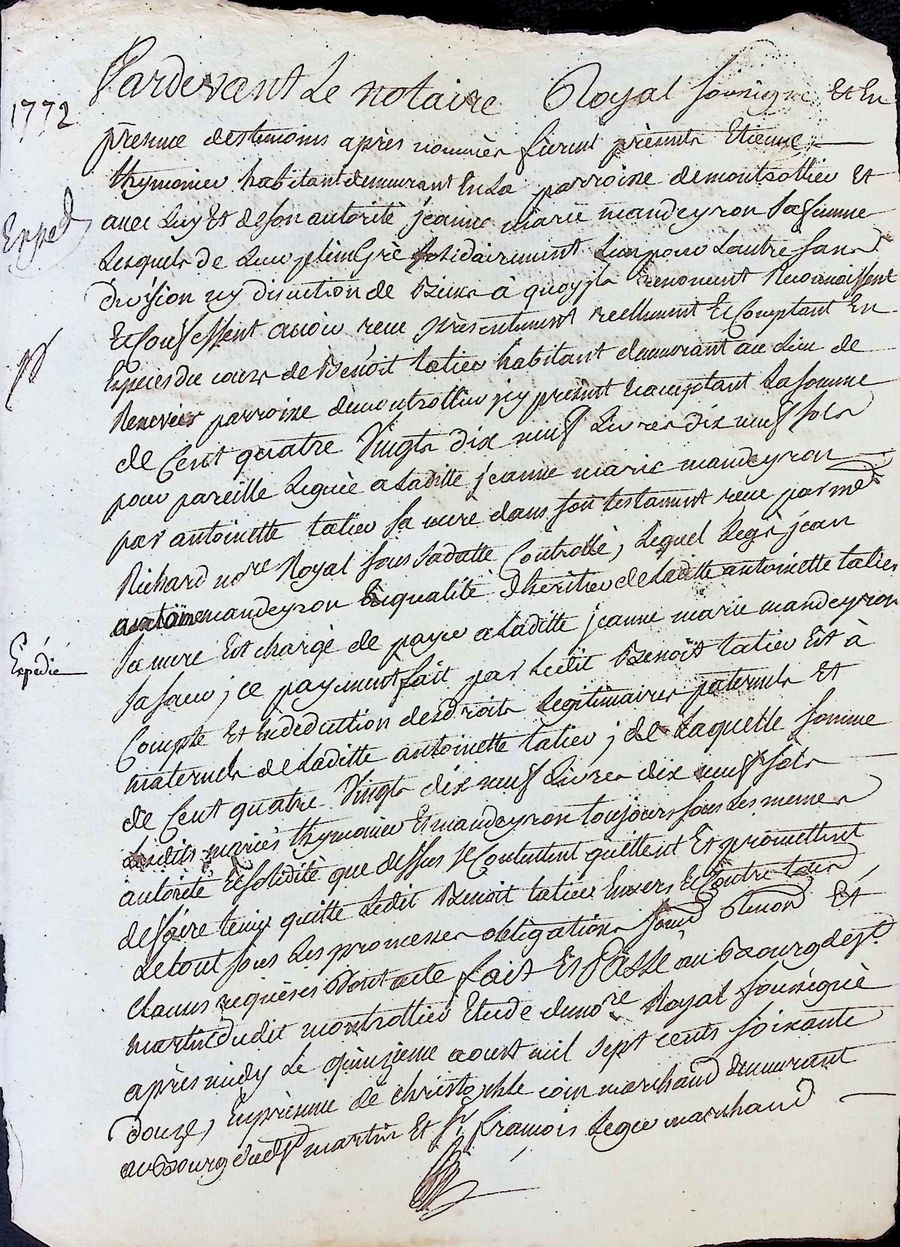 1772
Expéd
Expédié
Pardevant Le notaire Royal soussigné Et En
présence destemoins après nommés furent présents Etienne
thymonier habitant demeurant En La parroisse demontrollier Et
avec Luy Et deson autorité jeanne marie mandeyron Sa femme
Lesquels de Leur plein gré solidairement L'un pour L'autre sans
Division ny discution de Biens à quoy ils Renoncent Reconnoissent
Et Confessent avoir receu présentement reellement Et Comptant En
Espèces du cours de Benoit tatier habitant demeurant au Lieu de
parroisse demontrollier jcy présent Et acceptant La somme
de Cent quatre Vingts dix neuf Livres dix neuf sols
pour pareille Léguée a Laditte jeanne marie mandeyron
par antoinette tatier sa mere dans son testament receu par me
Richard nore Royal sous sa datte Controllé, Lequel Legs jean
antoine mandeyron En qualité d'heritier de Laditte antoinette tatier
sa mere Est chargé de payer a Laditte jeanne marie mandeyron
sa soeur ; ce payement fait par Ledit Benoit tatier Est à
Compte Et En deduction des Droits Legitimaires paternels Et
maternels de Laditte antoinette tatier ; de Laquelle somme
de Cent quatre Vingts dix neuf Livres dix neuf sols
Lesdits mariés thymonier Et mandeyron toujours sous Les memes
autorité Et solidité que dessus se Contentent quittent Et promettent
de faire tenir quitte Ledit Benoit tatier Envers Et Contre tous
Le tout sous Les promesses obligations soumd Renond Et
Clauses requises Dont acte fait Et Passé au Bourg de st
martin dudit montrollier Etude dunore Royal soussigné
après midy Le quinzieme aoust mil sept cents soixante
douze, En présence de christophle coin marchand demeurant
au Bourg dudt st martin Et sr françois Legér marchand